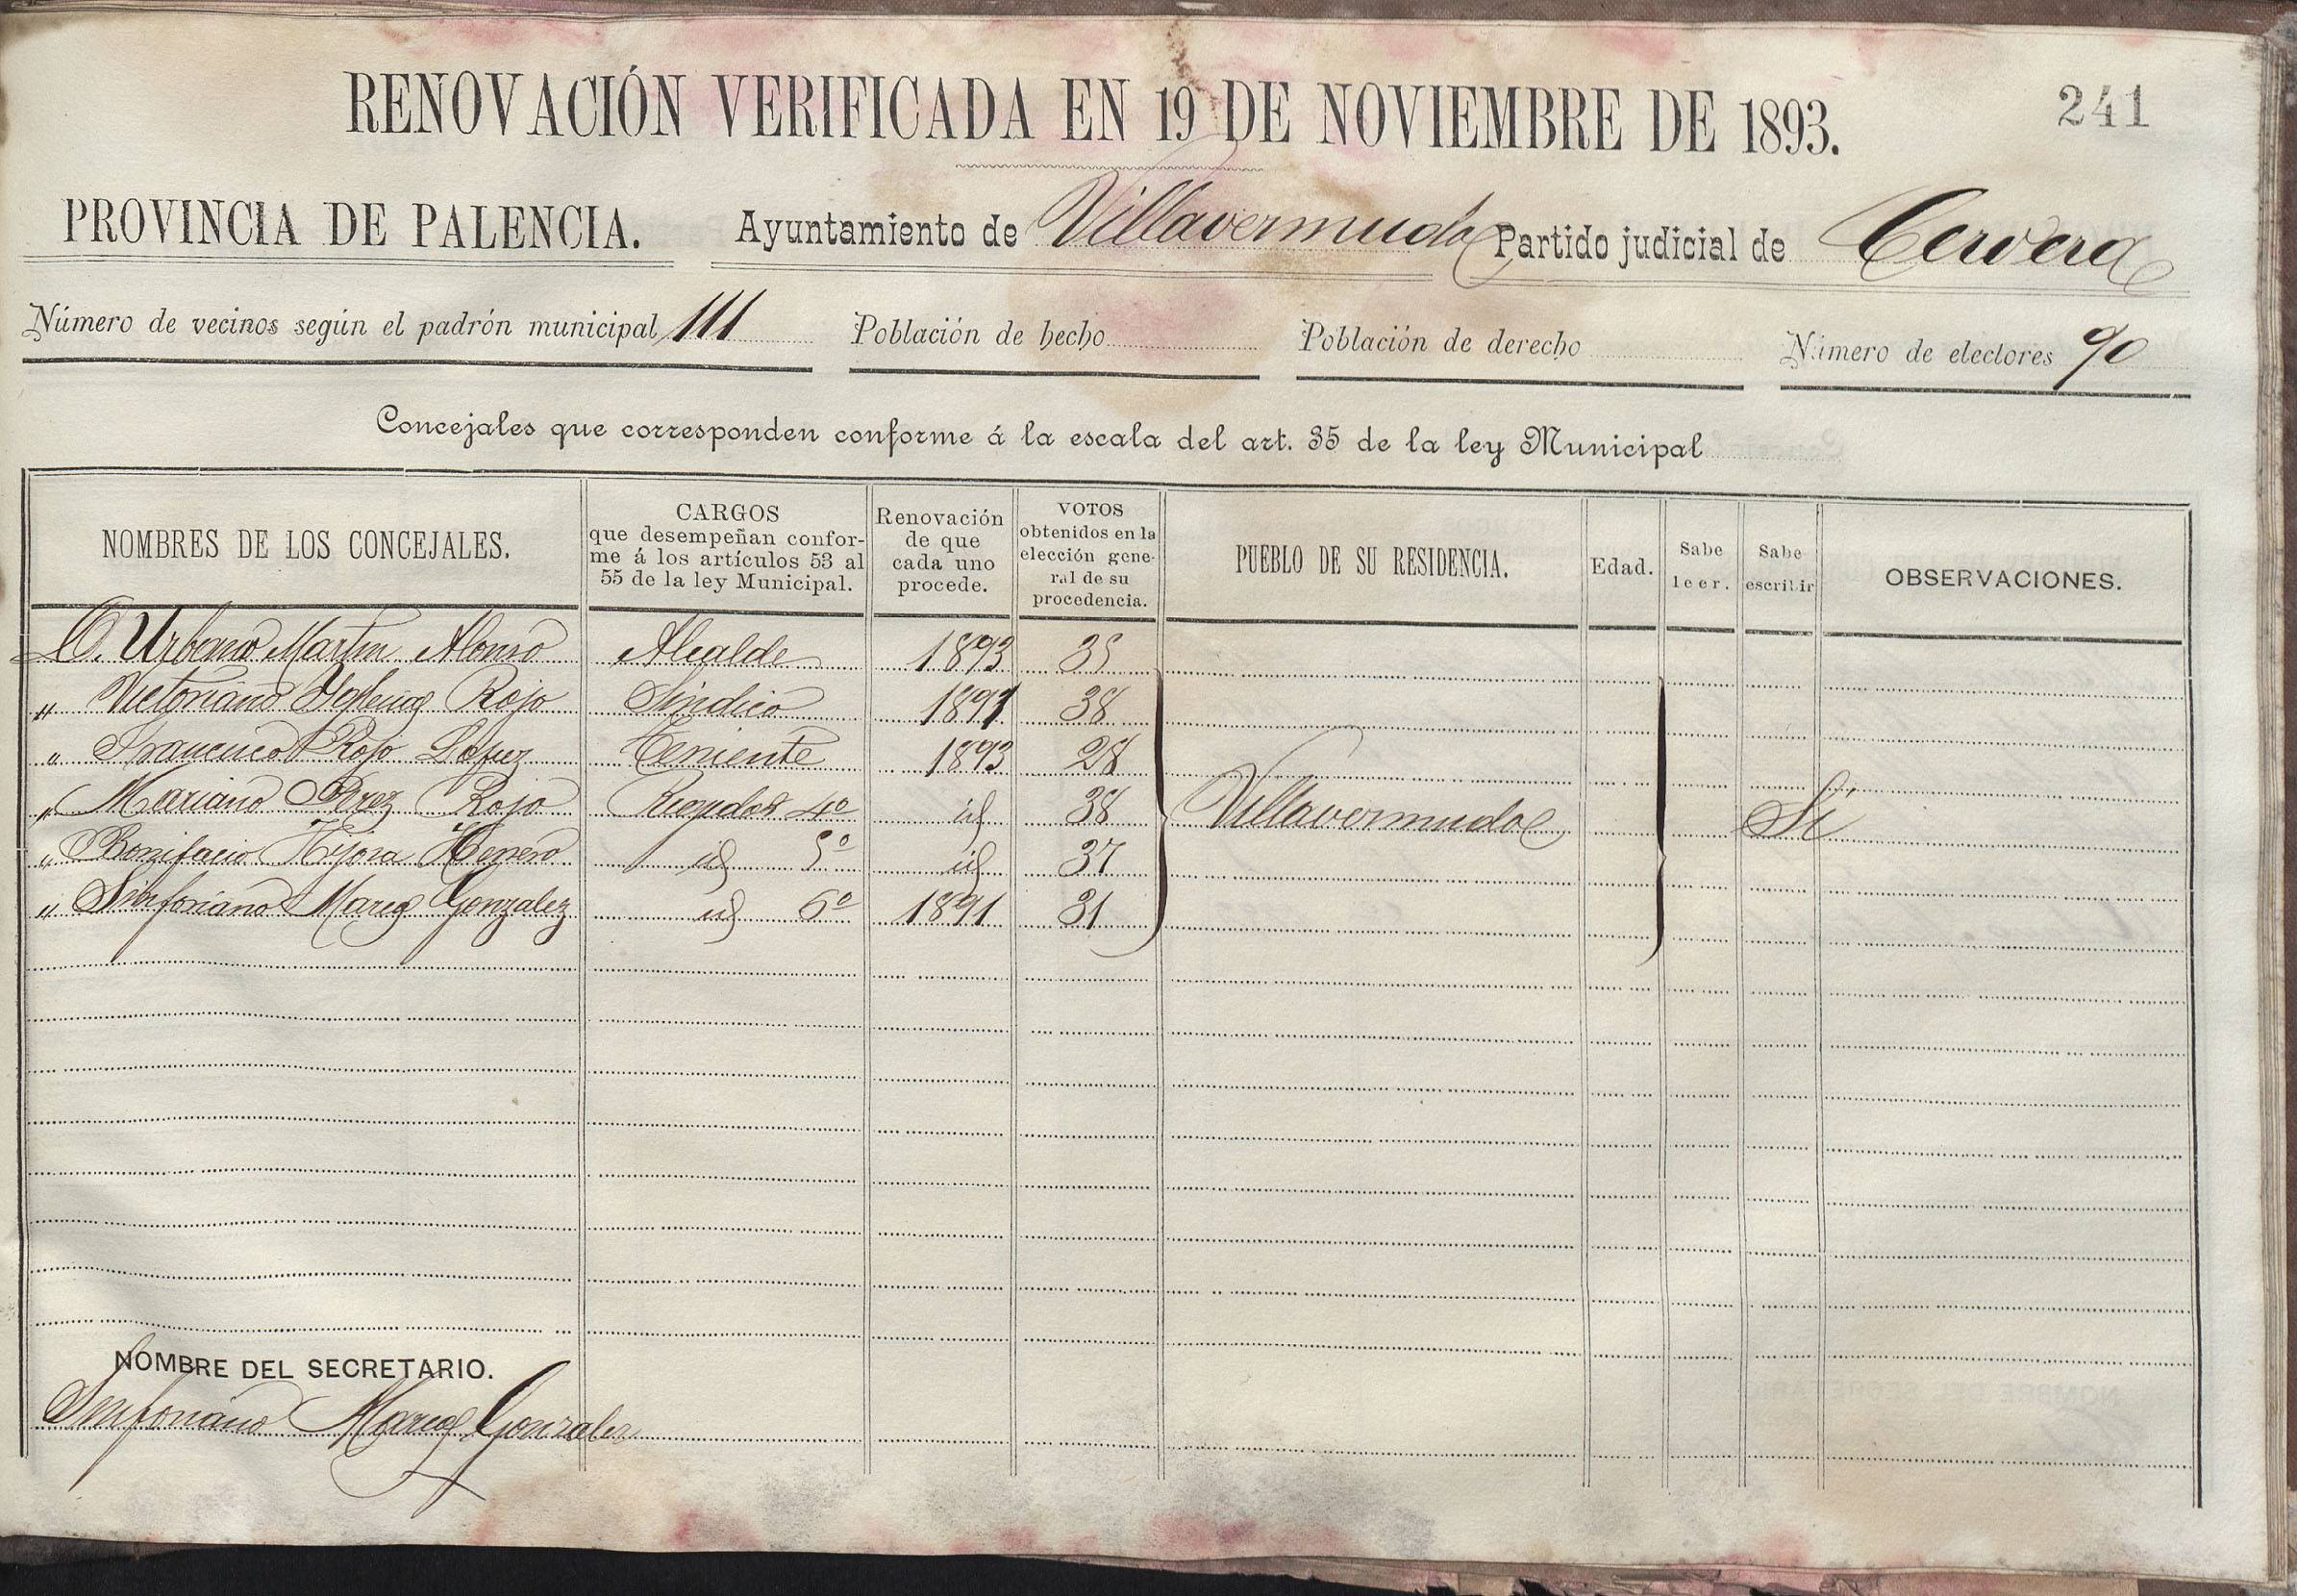 RENOVACIÓN VERIFICADA EN 19 DE NOVIEMBRE DE 1893.
241
PROVINCIA DE PALENCIA. Ayuntamiento de Villavermudo Partido judicial de Cervera
Número de vecinos según el padrón municipal 111 Población de hecho Población de derecho Número de electores 90
Concejales que corresponden conforme á la escala del art. 35 de la ley Municipal
NOMBRES DE LOS CONCEJALES.
CARGOS
que desempeñan confor-
me á los artículos 53 al
55 de la ley Municipal.
Renovación
de que
cada uno
procede.
VOTOS
obtenidos en la
elección gene-
ral de su
procedencia.
PUEBLO DE SU RESIDENCIA.
Edad.
Sabe
leer.
Sabe
escribir
OBSERVACIONES.
D. Urbano Martin Alonso Alcalde 1893 35
" Victoriano Rojo Sindico 1891 38
" Francisco Rojo Lopez Teniente 1893 28
" Mariano Perez Rojo Regidor 4º id 38 Villavermudo Si
" Bonifacio Herrero id 5º id 37
" Sinforiano Marcos Gonzalez id 6º 1891 31
NOMBRE DEL SECRETARIO.
Sinforiano Marcos Gonzalez